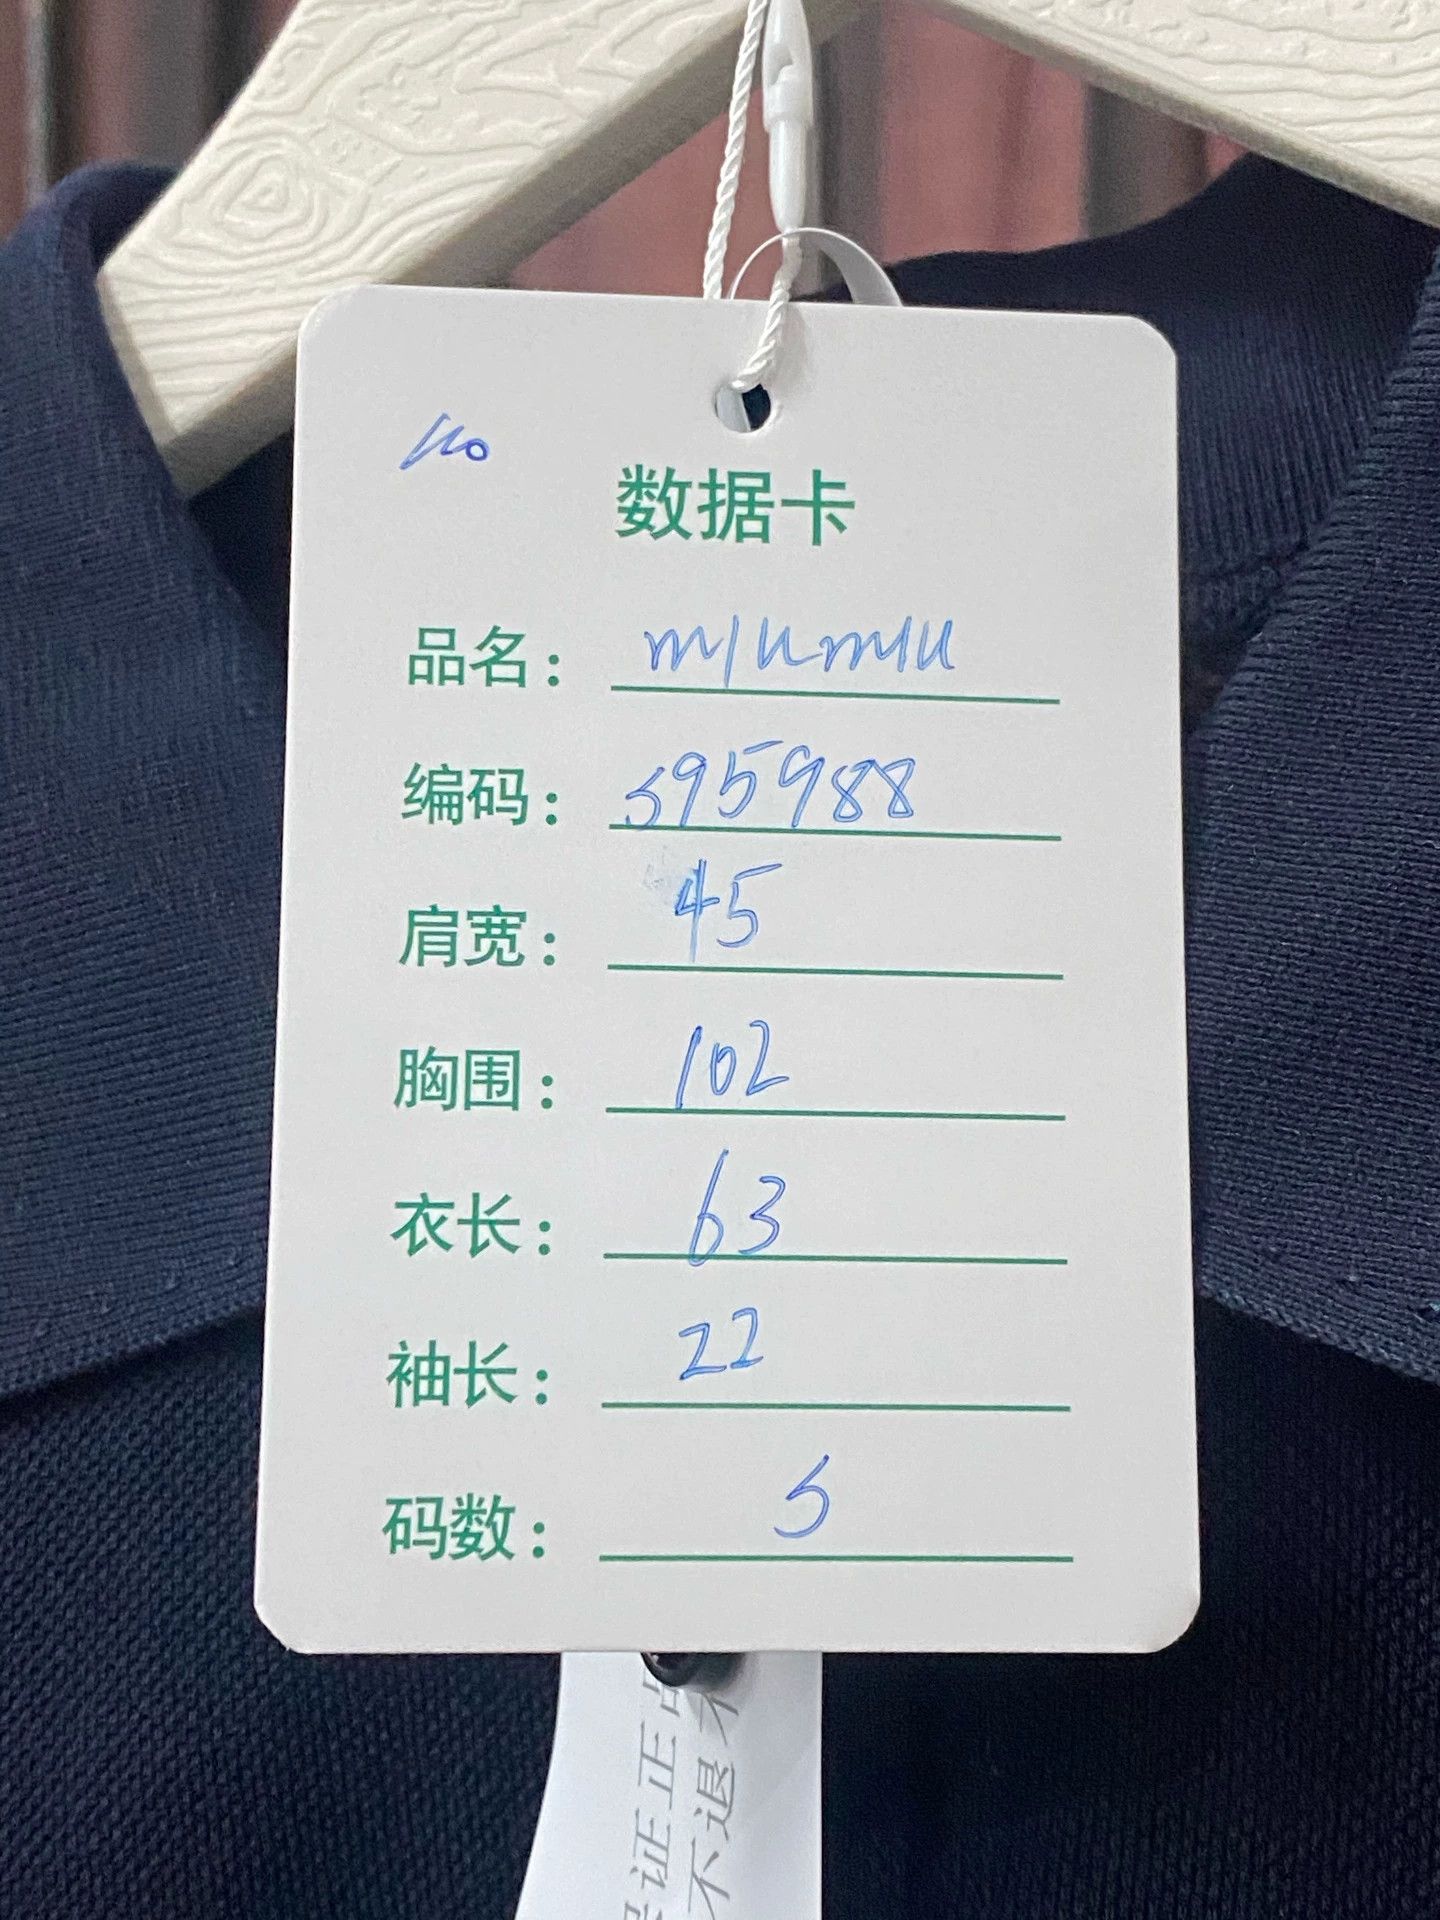 数据卡
品名： miumiu
编码： S95988
肩宽： 45
胸围： 102
衣长： 63
袖长： 22
码数： S
证正品
不退不